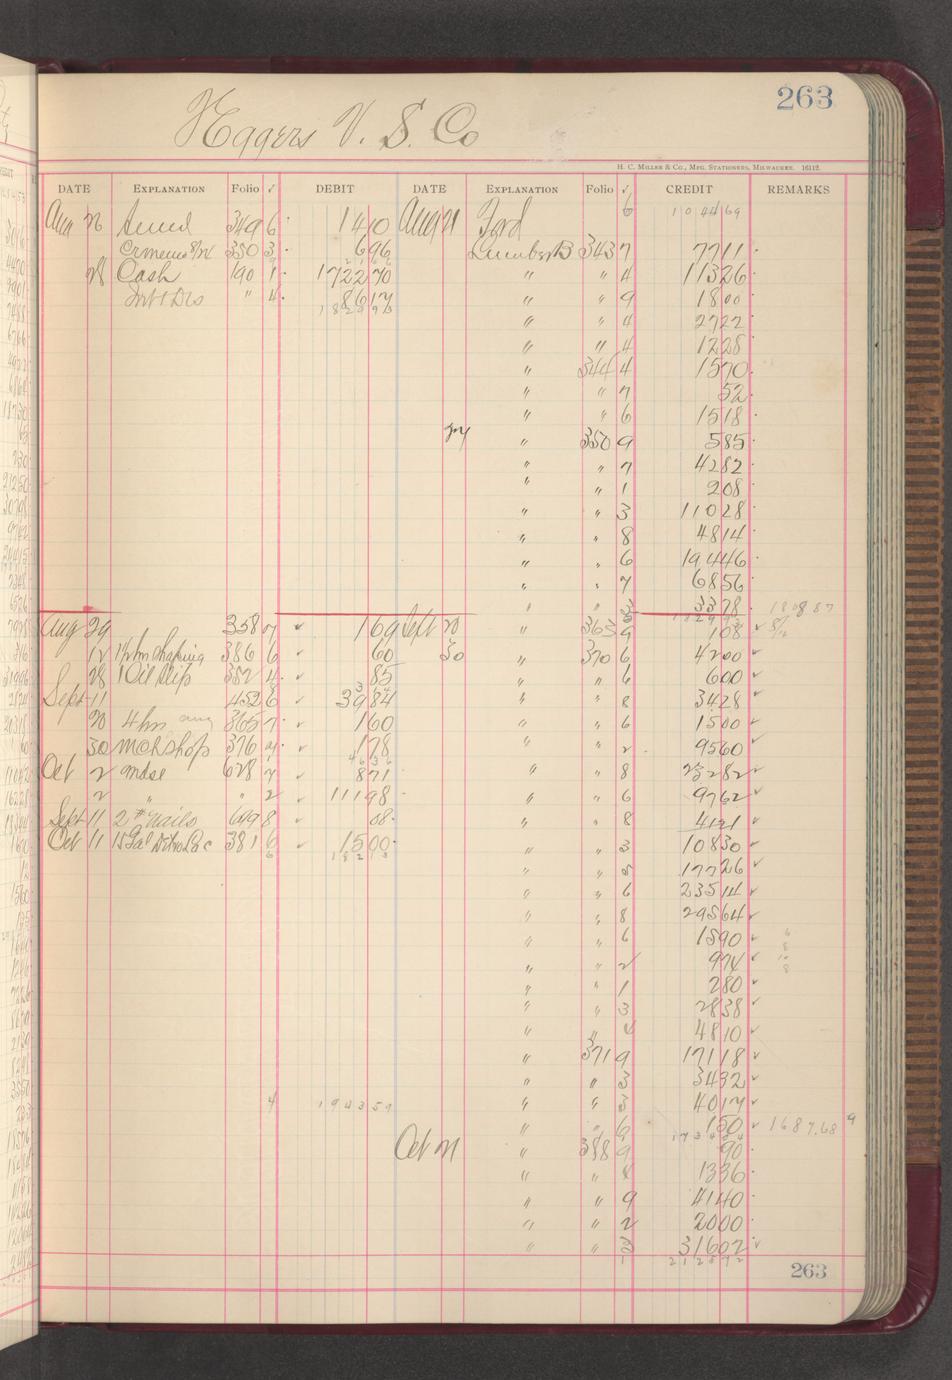 263
Haggers V. S. Co
H. C. Miller & Co., Mfg. Stationers, Milwaukee. 16112.
DATE EXPLANATION Folio √ DEBIT DATE EXPLANATION Folio √ CREDIT REMARKS
6 104469
Aug 26 349 6 140 Aug 21 Ford
350 3 696 Lumber B 343 7 7711
28 Cash 190 1 172270 " " 4 11326
" 4 8617 " " 9 1800
" " 4 2722
" " 4 1228
" 344 4 1570
" " 7 52
" " 6 1518
" 350 9 585
" " 7 4282
" " 1 208
" " 3 11028
" " 8 4814
" " 6 19446
" " 7 6856
" " 3378 180887
Aug 29 358 7 √ 169 Sept 20 " 365 9 108 √
12 386 6 √ 60 30 " 370 6 4200 √
28 1 Oil Slip 352 4 √ 85 " " 6 600 √
Sept 11 452 6 √ 3984 " " 8 3428 √
20 4 hrs 365 7 √ 160 " " 6 1500 √
30 Mch Shop 376 4 √ 178 " " 2 9560 √
Oct 2 Mdse 628 7 √ 871 " " 8 25282 √
2 " " 2 √ 11198 " " 6 9762 √
Sept 11 2# Nails 649 8 08 " " 8 4121 √
Oct 11 15 Gal 381 6 √ 1500 " " 3 10830 √
" " 9 17726 √
" " 6 23514 √
" " 8 29564 √
" " 6 1590 √
" " 2 974 √
" " 1 280 √
" " 3 2838 √
" " 4 4810 √
" 371 9 17118 √
" " 3 3432 √
4 194359 " " 3 4017 √
" " 6 150 √ 1687.68 9
Oct 21 " 388 9 90
" " 4 1336
" " 9 4140
" " 2 2000
" " 31602 √
212872
263